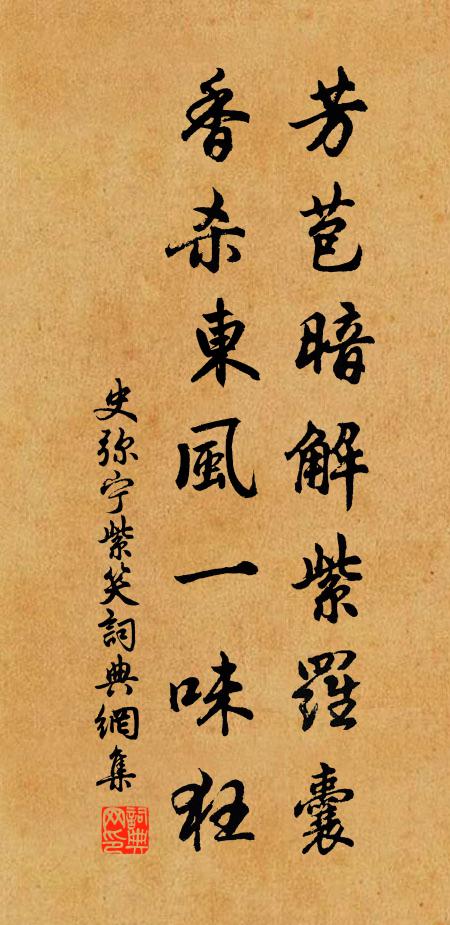 芳苞暗解紫羅囊
香杀東風一味狂
史弥宁紫笑詞典網集
詞典网印